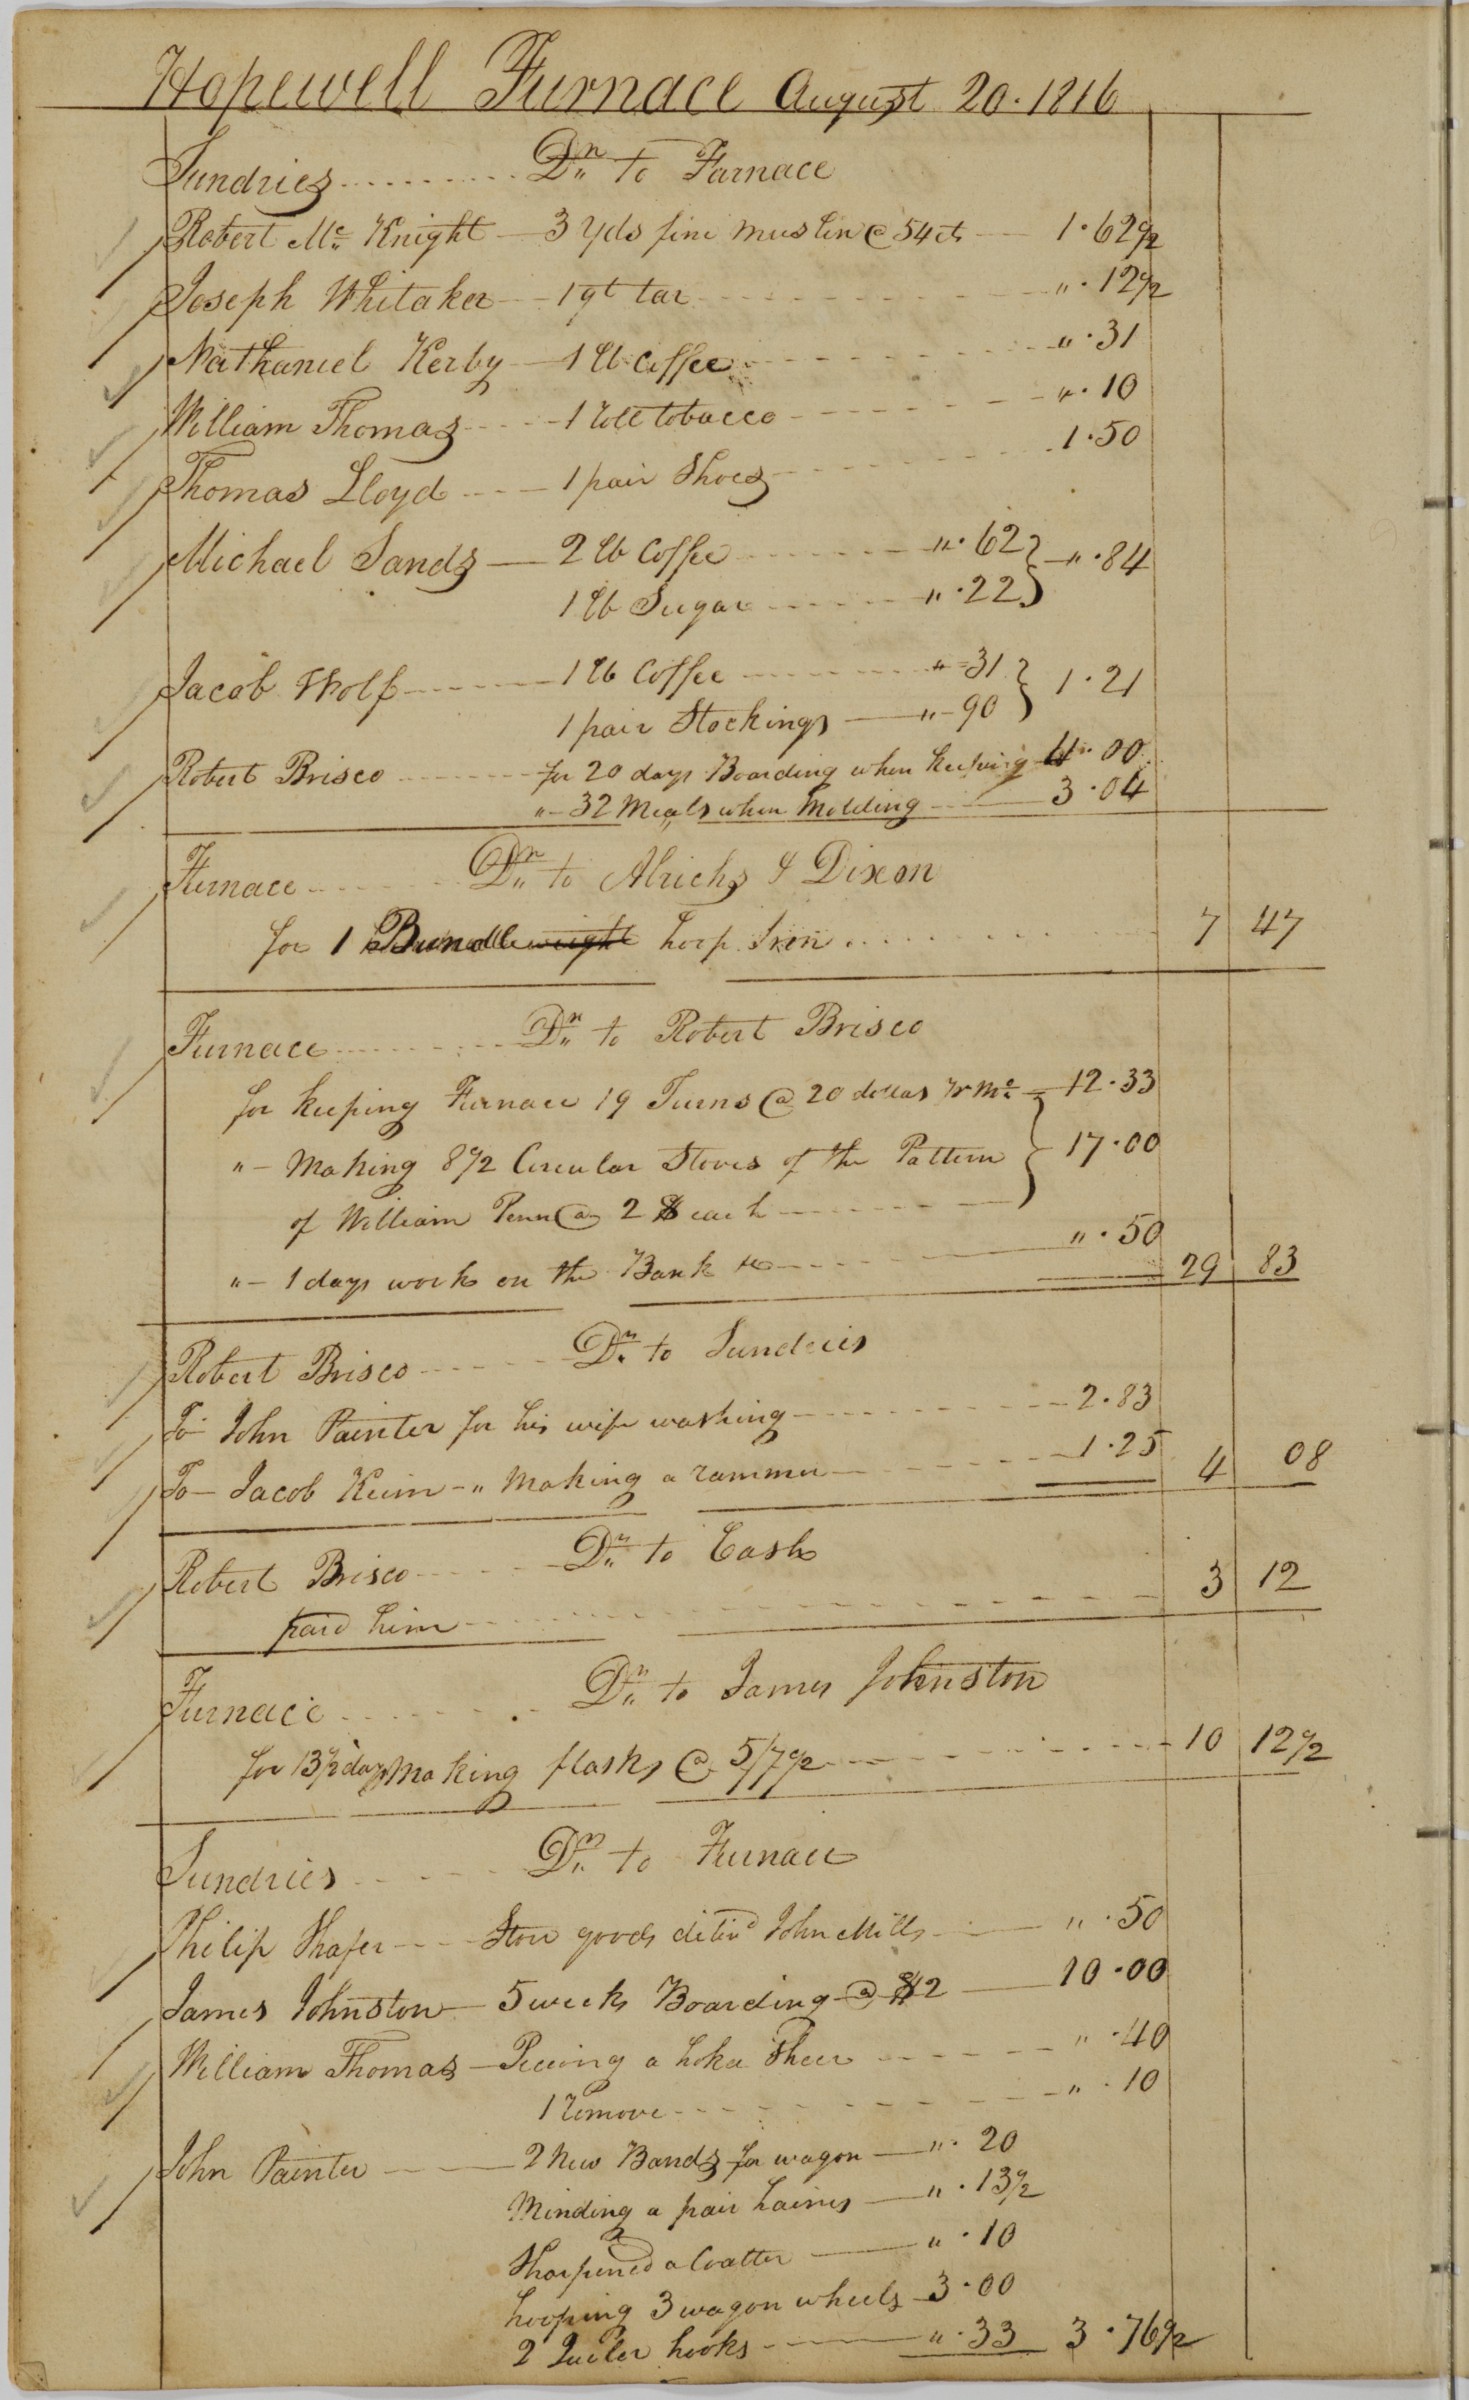 Hopewell Furnace August 20. 1816
Sundries .......... Dr. to Furnace
Robert Mc. Knight — 3 Yds fine muslin @ 54 cts — 1.62 1/2
Joseph Whitaker — 1 qt tar - - - " . 12 1/2
Nathaniel Kerby — 1 lb Coffee - - - " . 31
William Thomas - - - 1 roll tobacco - - - " . 10
Thomas Lloyd - - - 1 pair Shoes - - - 1.50
Michael Sands — 2 lb Coffee - - - " . 62 } " . 84
1 lb Sugar - - - " . 22
Jacob Wolf - - - 1 lb Coffee - - - " - 31 } 1.21
1 pair Stockings — " - 90
Robert Brisco - - - for 20 days Boarding when keeping 4.00
" - 32 Meals when Molding - - - 3.04
Furnace - - - Dr. to Alrichs & Dixon
for 1 Bundle weight hoop Iron ......... 7 47
Furnace - - - Dr. to Robert Brisco
for keeping Furnace 19 Turns @ 20 dollas pr Mo. — 12.33
" - Making 8 1/2 Circular Stoves of the Pattern } 17.00
of William Penn @ 2 $ each - - -
" - 1 days work on the Bank - - - " . 50 29 83
Robert Brisco - - - Dr. to Sundries
To John Painter for his wife washing - - - 2.83
To - Jacob Keim - " Making a rammer - - - 1.25 4 08
Robert Brisco - - - Dr. to Cash
paid him - - - 3 12
Furnace - - - Dr. to James Johnston
for 13 1/2 days Making flasks @ 5/7 1/2 - - - 10 12 1/2
Sundries - - - Dr. to Furnace
Philip Shafer - - - Store goods deliv'd John Mills - - - " . 50
James Johnston — 5 weeks Boarding @ $2 — 10.00
William Thomas — Pieceing a Sheer - - - " . 40
1 remove - - - " . 10
John Painter - - - 2 New Bands for wagon — " . 20
Minding a pair haims — " . 13 1/2
Sharpened a Coatter — " . 10
hooping 3 wagon wheels — 3.00
2 hooks - - - " . 33 3.76 1/2